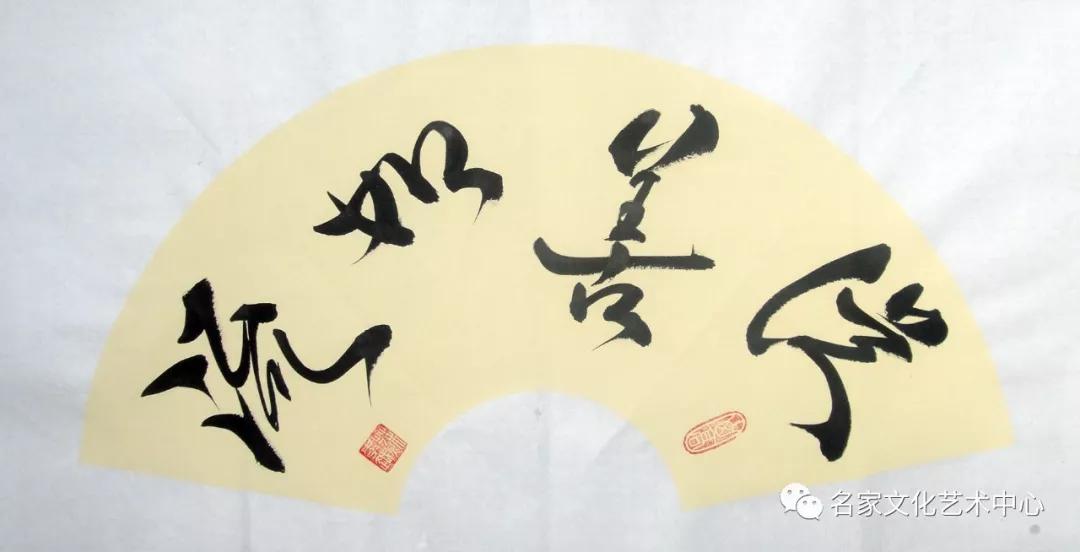 從善如流
名家文化艺术中心